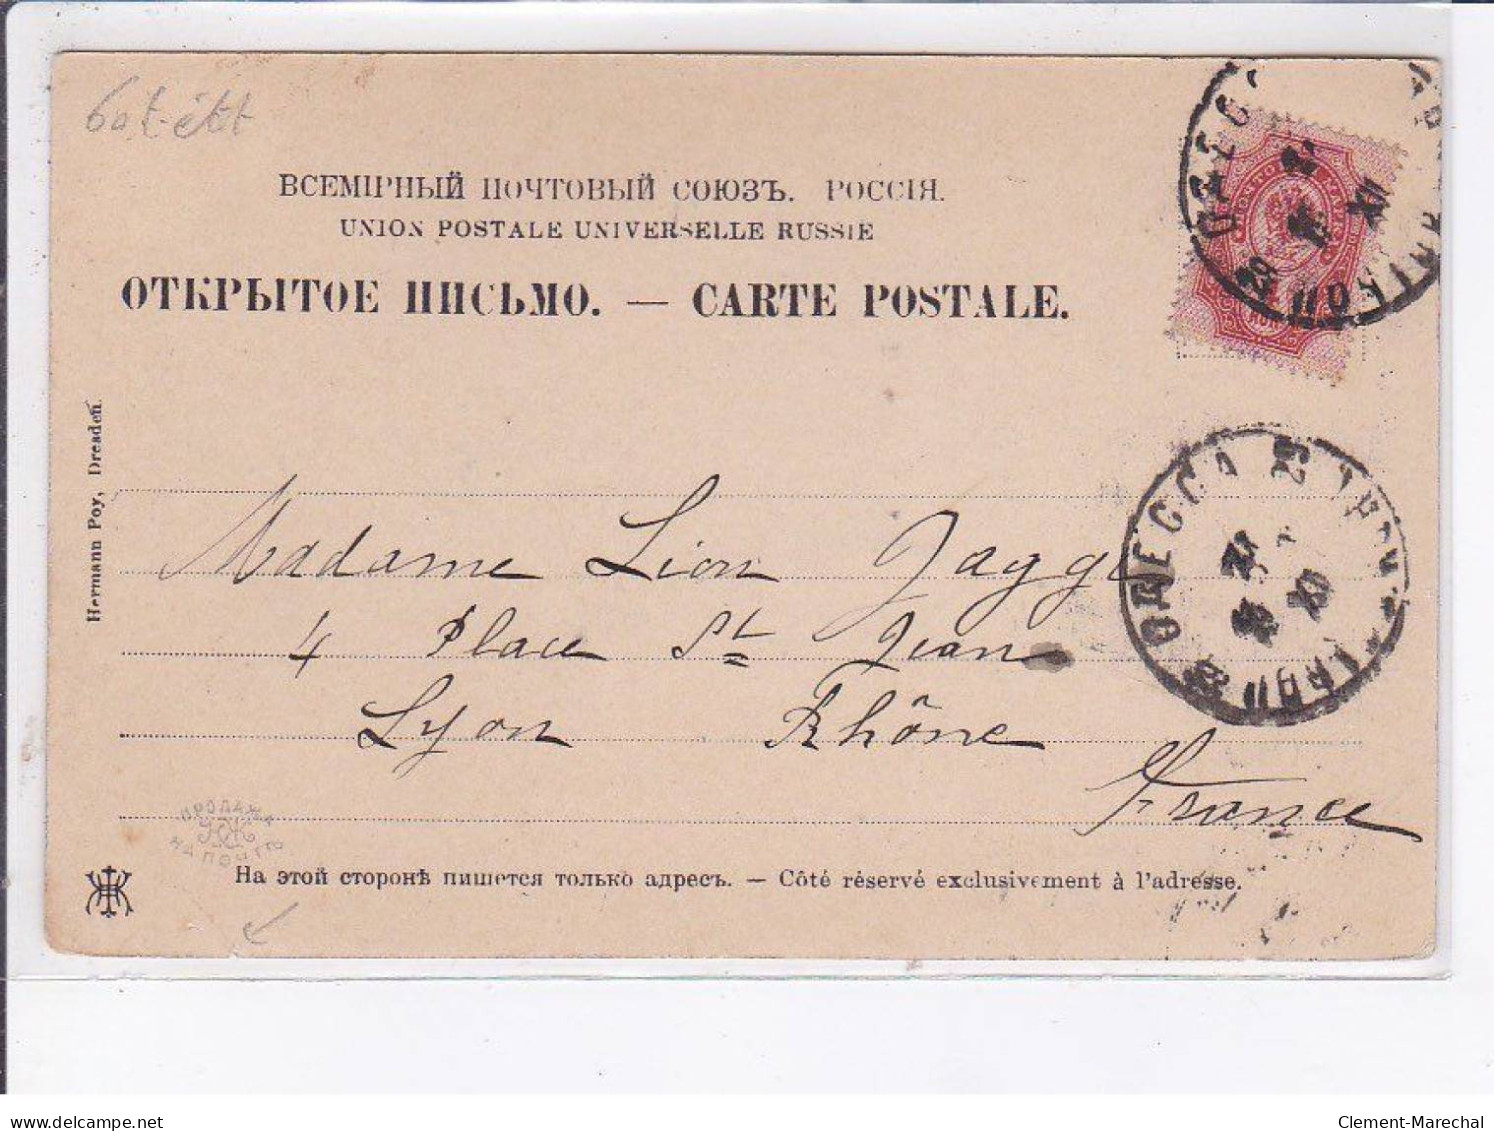 60t-étt
ВСЕМІРНЫЙ ПОЧТОВЫЙ СОЮЗЪ. РОССІЯ.
UNION POSTALE UNIVERSELLE RUSSIE
ОТКРЫТОЕ ПИСЬМО. — CARTE POSTALE.
Hermann Poy, Dresden.
ОДЕССА
XII
Madame Lion Jaggi
4 Place St Jean
Lyon Rhône
France
ПРОДАЖА
НА ПОЧТѢ
На этой сторонѣ пишется только адресъ. — Côté réservé exclusivement à l'adresse.
delcampe.net
Clement-Marechal